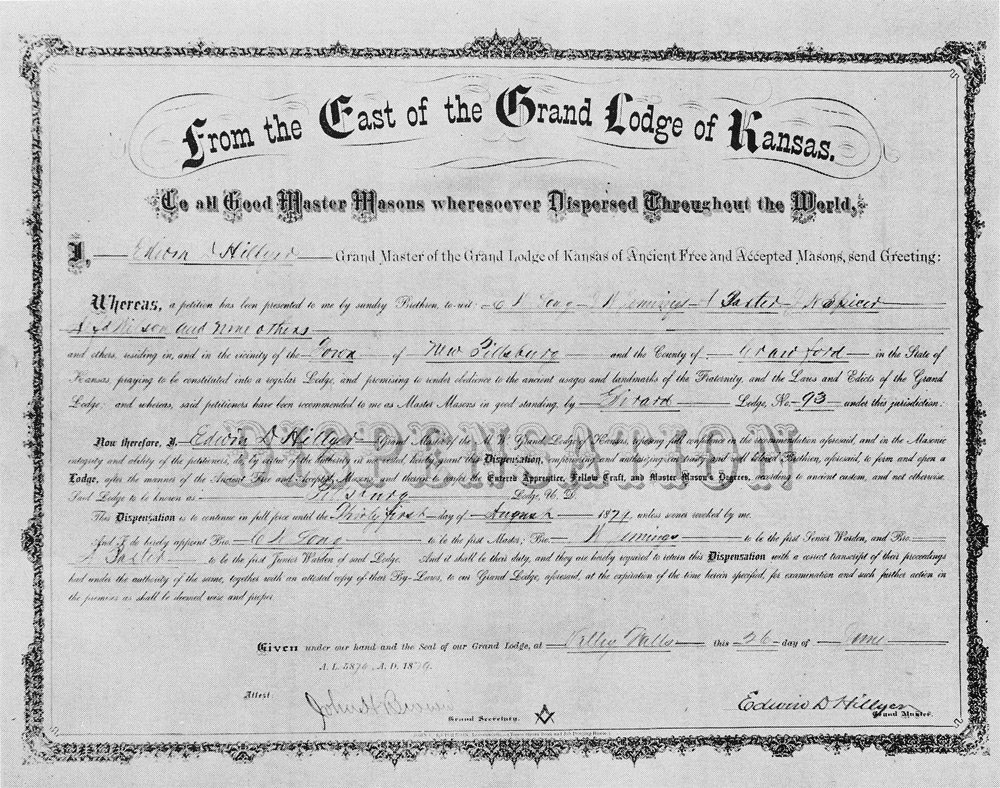 From the East of the Grand Lodge of Kansas.
To all Good Master Masons wheresoever Dispersed Throughout the World,
I, Edwin D Hillyer Grand Master of the Grand Lodge of Kansas of Ancient Free and Accepted Masons, send Greeting:
Whereas, a petition has been presented to me by sundry Brethren, to-wit: C Long Jennings J Baxter
and nine others
and others, residing in, and in the vicinity of the Town of New Pittsburg and the County of Crawford in the State of
Kansas, praying to be constituted into a regular Lodge, and promising to render obedience to the ancient usages and landmarks of the Fraternity, and the Laws and Edicts of the Grand
Lodge; and whereas, said petitioners have been recommended to me as Master Masons in good standing, by Girard Lodge, No. 93 under this jurisdiction:
DISPENSATION
Now therefore, I, Edwin D Hillyer Grand Master of the M. W. Grand Lodge of Kansas, reposing full confidence in the recommendation aforesaid, and in the Masonic
integrity and ability of the petitioners, do, by virtue of the authority in me vested, hereby grant this Dispensation, empowering and authorizing our trusty and well beloved Brethren, aforesaid, to form and open a
Lodge, after the manner of the Ancient Free and Accepted Masons, and therein to confer the Entered Apprentice, Fellow Craft, and Master Mason's Degrees, according to ancient custom, and not otherwise.
Said Lodge to be known as Pittsburg Lodge, U. D.
This Dispensation is to continue in full force until the Thirty first day of August 1879, unless sooner revoked by me.
And I do hereby appoint Bro. C Long to be the first Master; Bro. Jennings to be the first Senior Warden, and Bro.
J Baxter to be the first Junior Warden of said Lodge. And it shall be their duty, and they are hereby required to return this Dispensation with a correct transcript of their proceedings
had under the authority of the same, together with an attested copy of their By-Laws, to our Grand Lodge, aforesaid, at the expiration of the time herein specified, for examination and such further action in
the premises as shall be deemed wise and proper.
Given under our hand and the Seal of our Grand Lodge, at Valley Falls this 26 day of June
A. L. 5879, A. D. 1879.
Attest, John H Brown
Grand Secretary.
Edwin D Hillyer
Grand Master.